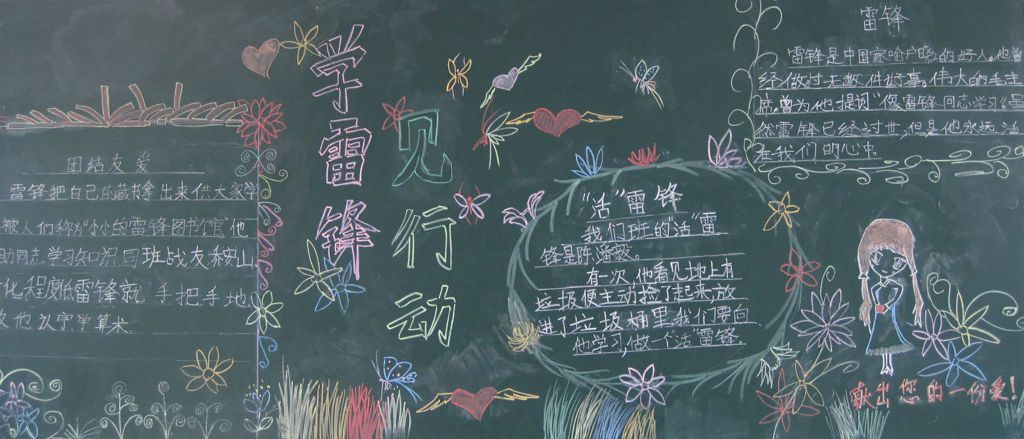 团结友爱
雷锋把自己的藏书拿出来供大家学
被人们称为“小小的雷锋图书馆”他
助同志学习知识同班战友
化程度低雷锋就手把手地
教他认字学算术
学雷锋
见行动
“活”雷锋
我们班的“活”雷
锋是陈
有一次,他看见地上有
垃圾便主动捡了起来放
进了垃圾桶里,我们要向
他学习,做一个活雷锋.
雷锋
雷锋是中国家喻户晓的好人。他曾
经做过无数件好事。伟大的毛主
席,曾为他提词“像雷锋同志学习
然雷锋已经过世,但是他永远活
在我们的心中
献出您的一份爱!